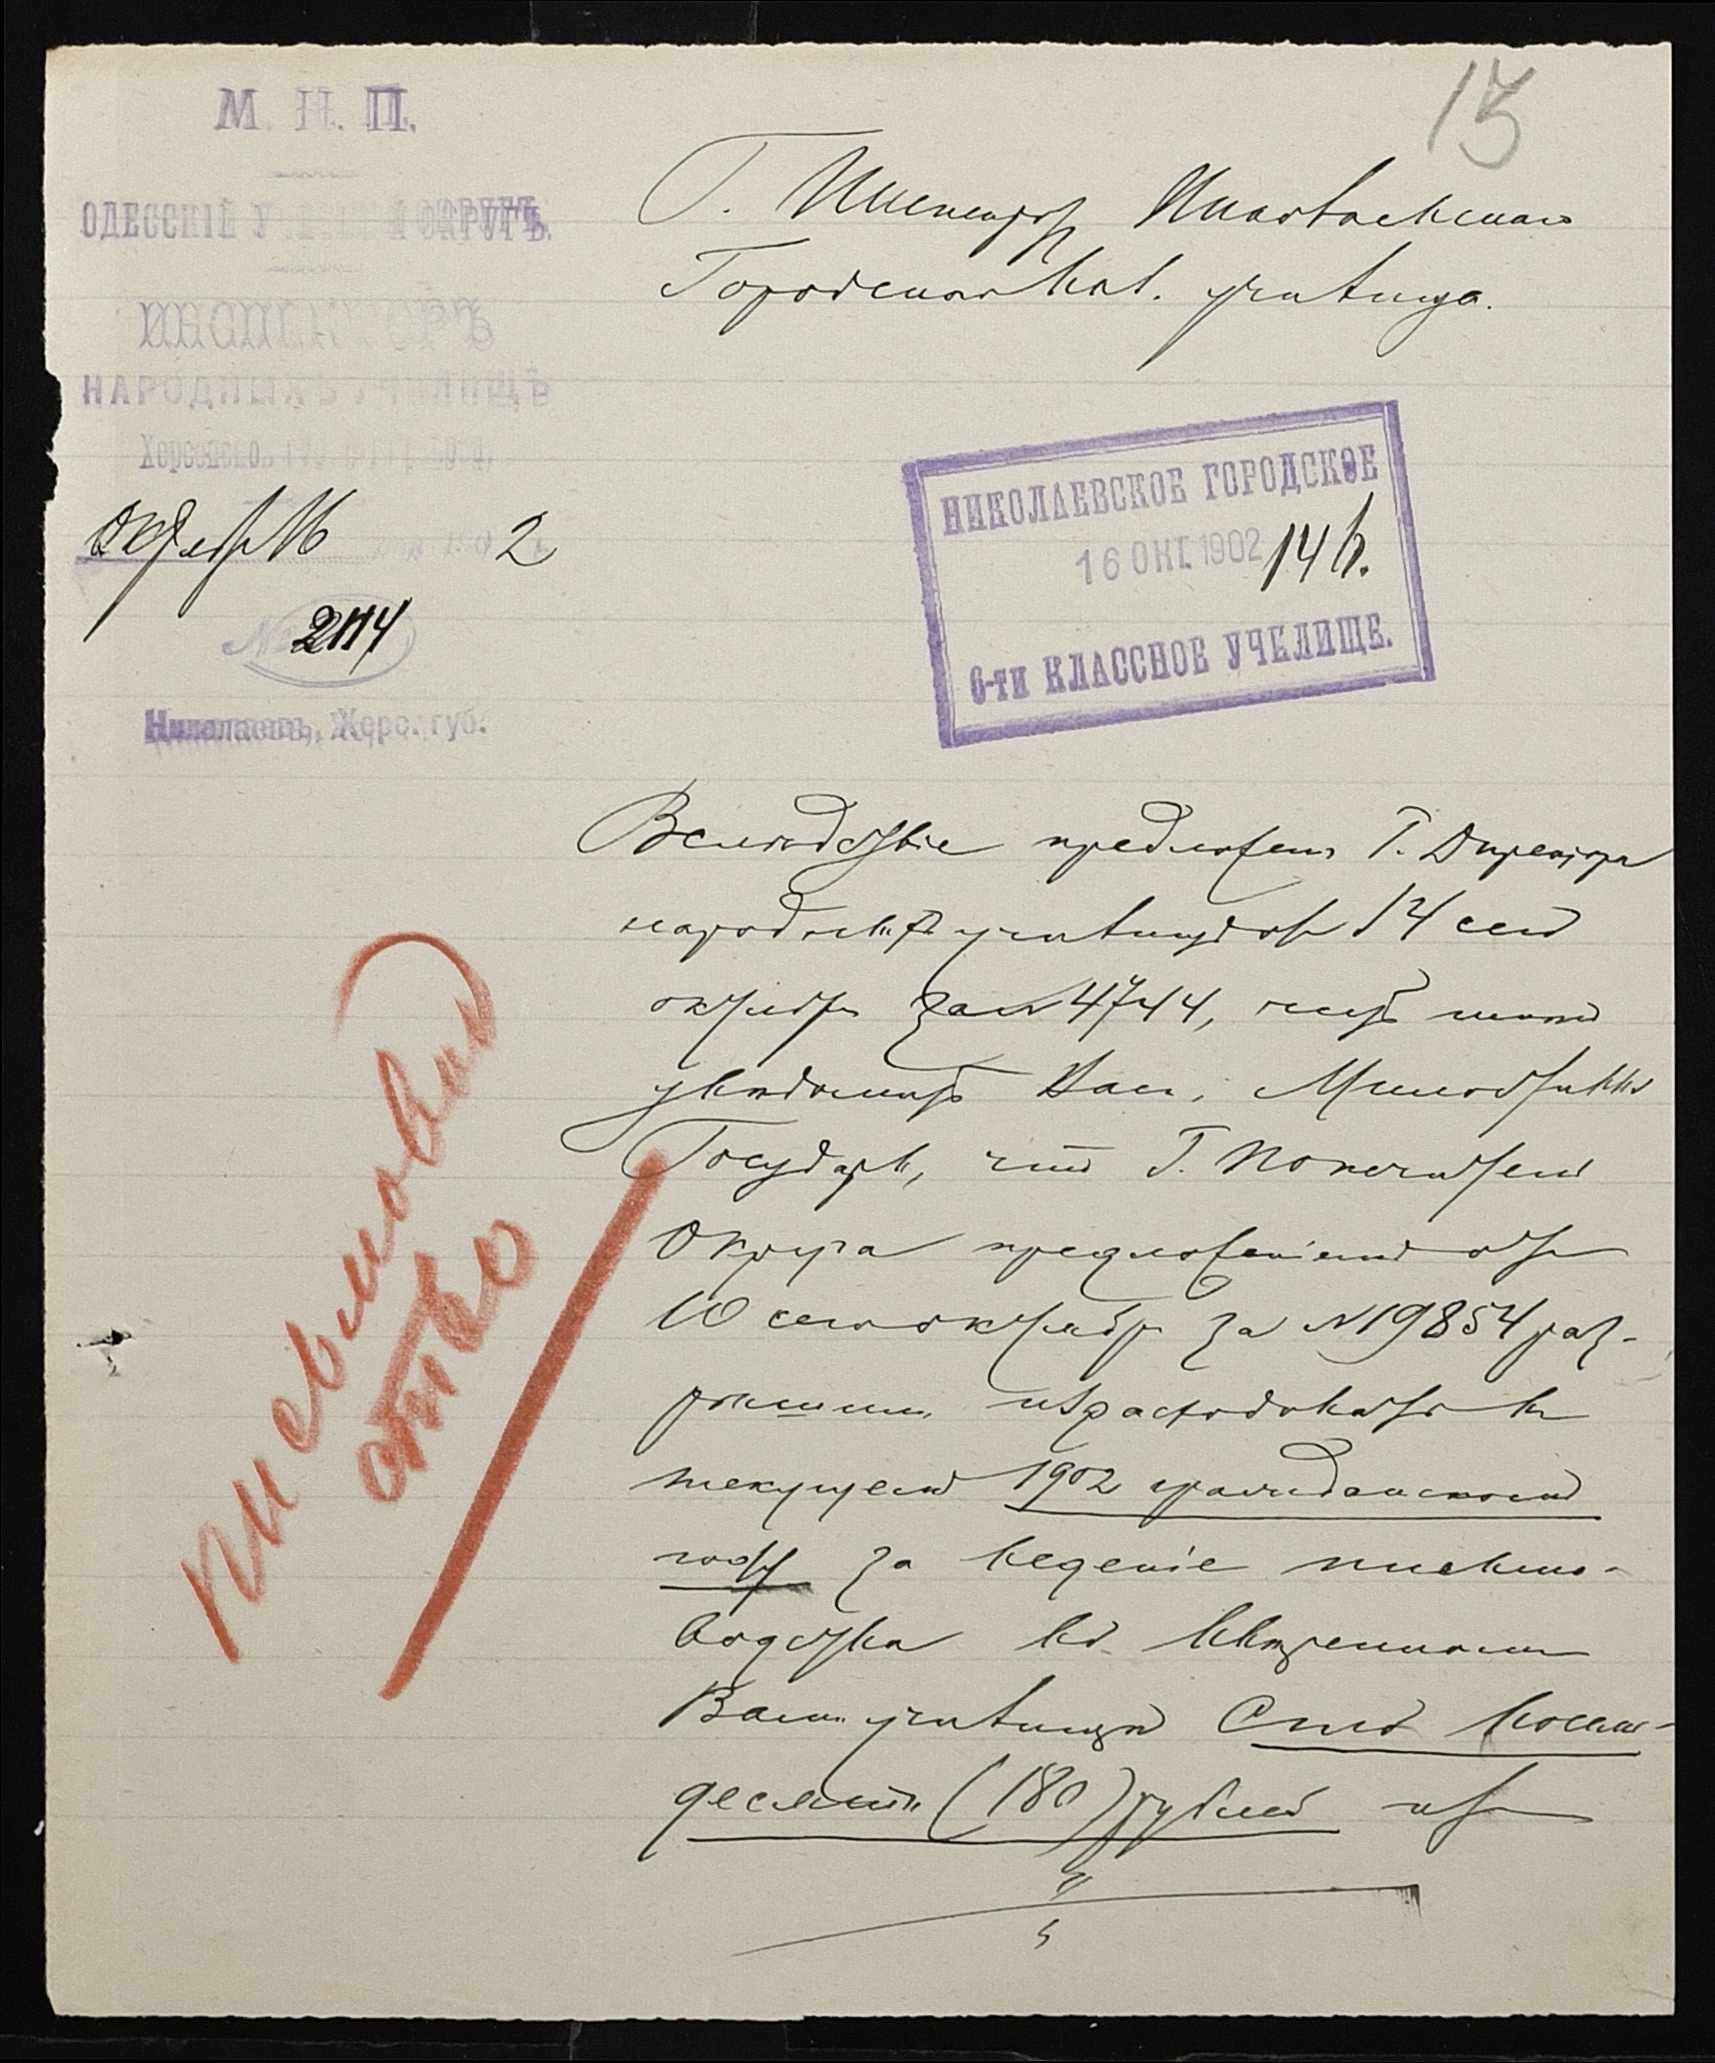 15
М. Н. П.
ОДЕССКІЙ У ОКРУГЪ.
ИНСПЕКТОРЪ
НАРОДНЫХЪ УЧИЛИЩЪ
Херсонской
Октября 16 2
№ 2114
Николаевъ, Херс. губ.
Г. Инспектору Николаевскаго
Городского училища.
НИКОЛАЕВСКОЕ ГОРОДСКОЕ
16 ОКТ. 1902
6-ти КЛАССНОЕ УЧИЛИЩЕ.
Вследствіе предложенія Г. Директора
народныхъ училищъ отъ 14 сего
октября за № 4744, честь имѣю
увѣдомить Васъ, Милостивый
Государь, что Г. Попечитель
Округа предложеніемъ отъ
10 сего октября за № 19854 раз-
рѣшилъ израсходовать въ
текущемъ 1902 гражданскомъ
году за веденіе письмо-
водства во ввѣренномъ
Вамъ училищѣ сто восемь-
десятъ (180) рублей изъ
письмовод
ство